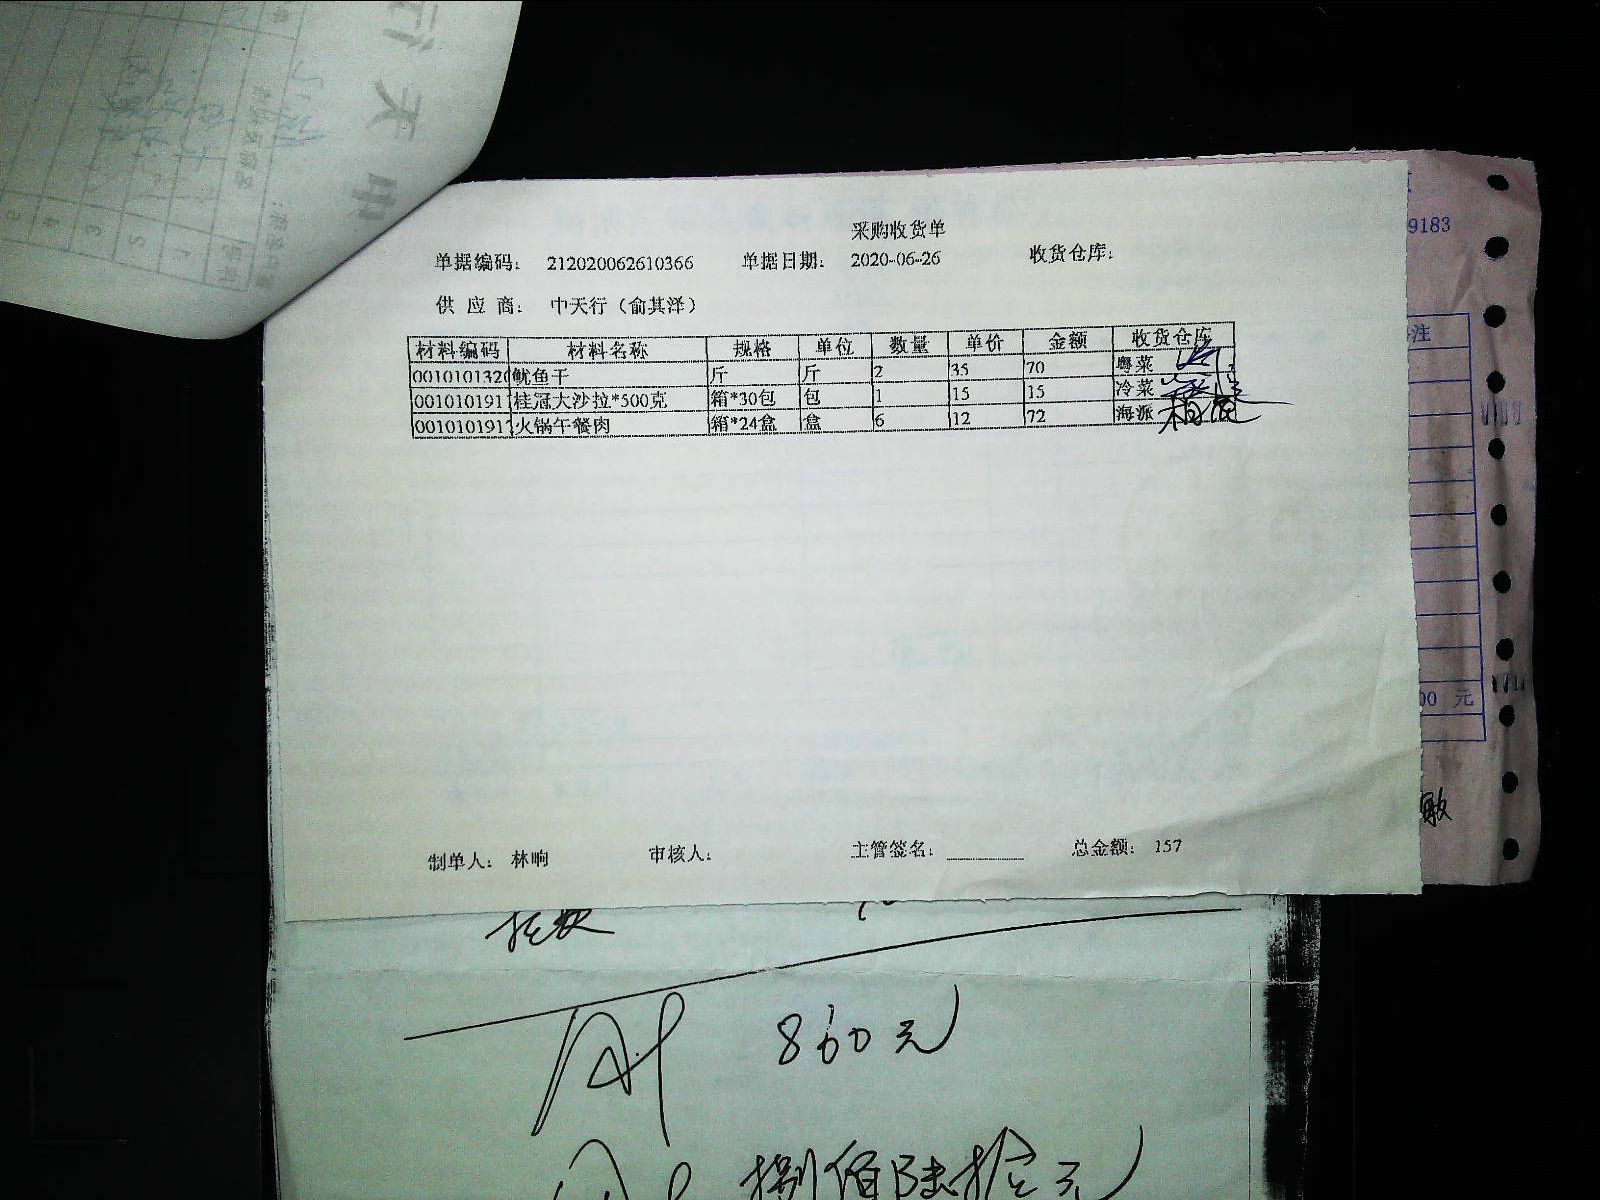 采购收货单
单据编码： 212020062610366 单据日期： 2020-06-26 收货仓库：
供 应 商： 中天行（俞其泽）
材料编码 材料名称 规格 单位 数量 单价 金额 收货仓库
0010101320 鱿鱼干 斤 斤 2 35 70 粤菜
001010191 桂冠大沙拉*500克 箱*30包 包 1 15 15 冷菜
0010101917 火锅午餐肉 箱*24盒 盒 6 12 72 海派
制单人： 林晌 审核人： 主管签名： 总金额： 157
9183
注
00 元
敏
860元
捌佰陆拾元
行天中